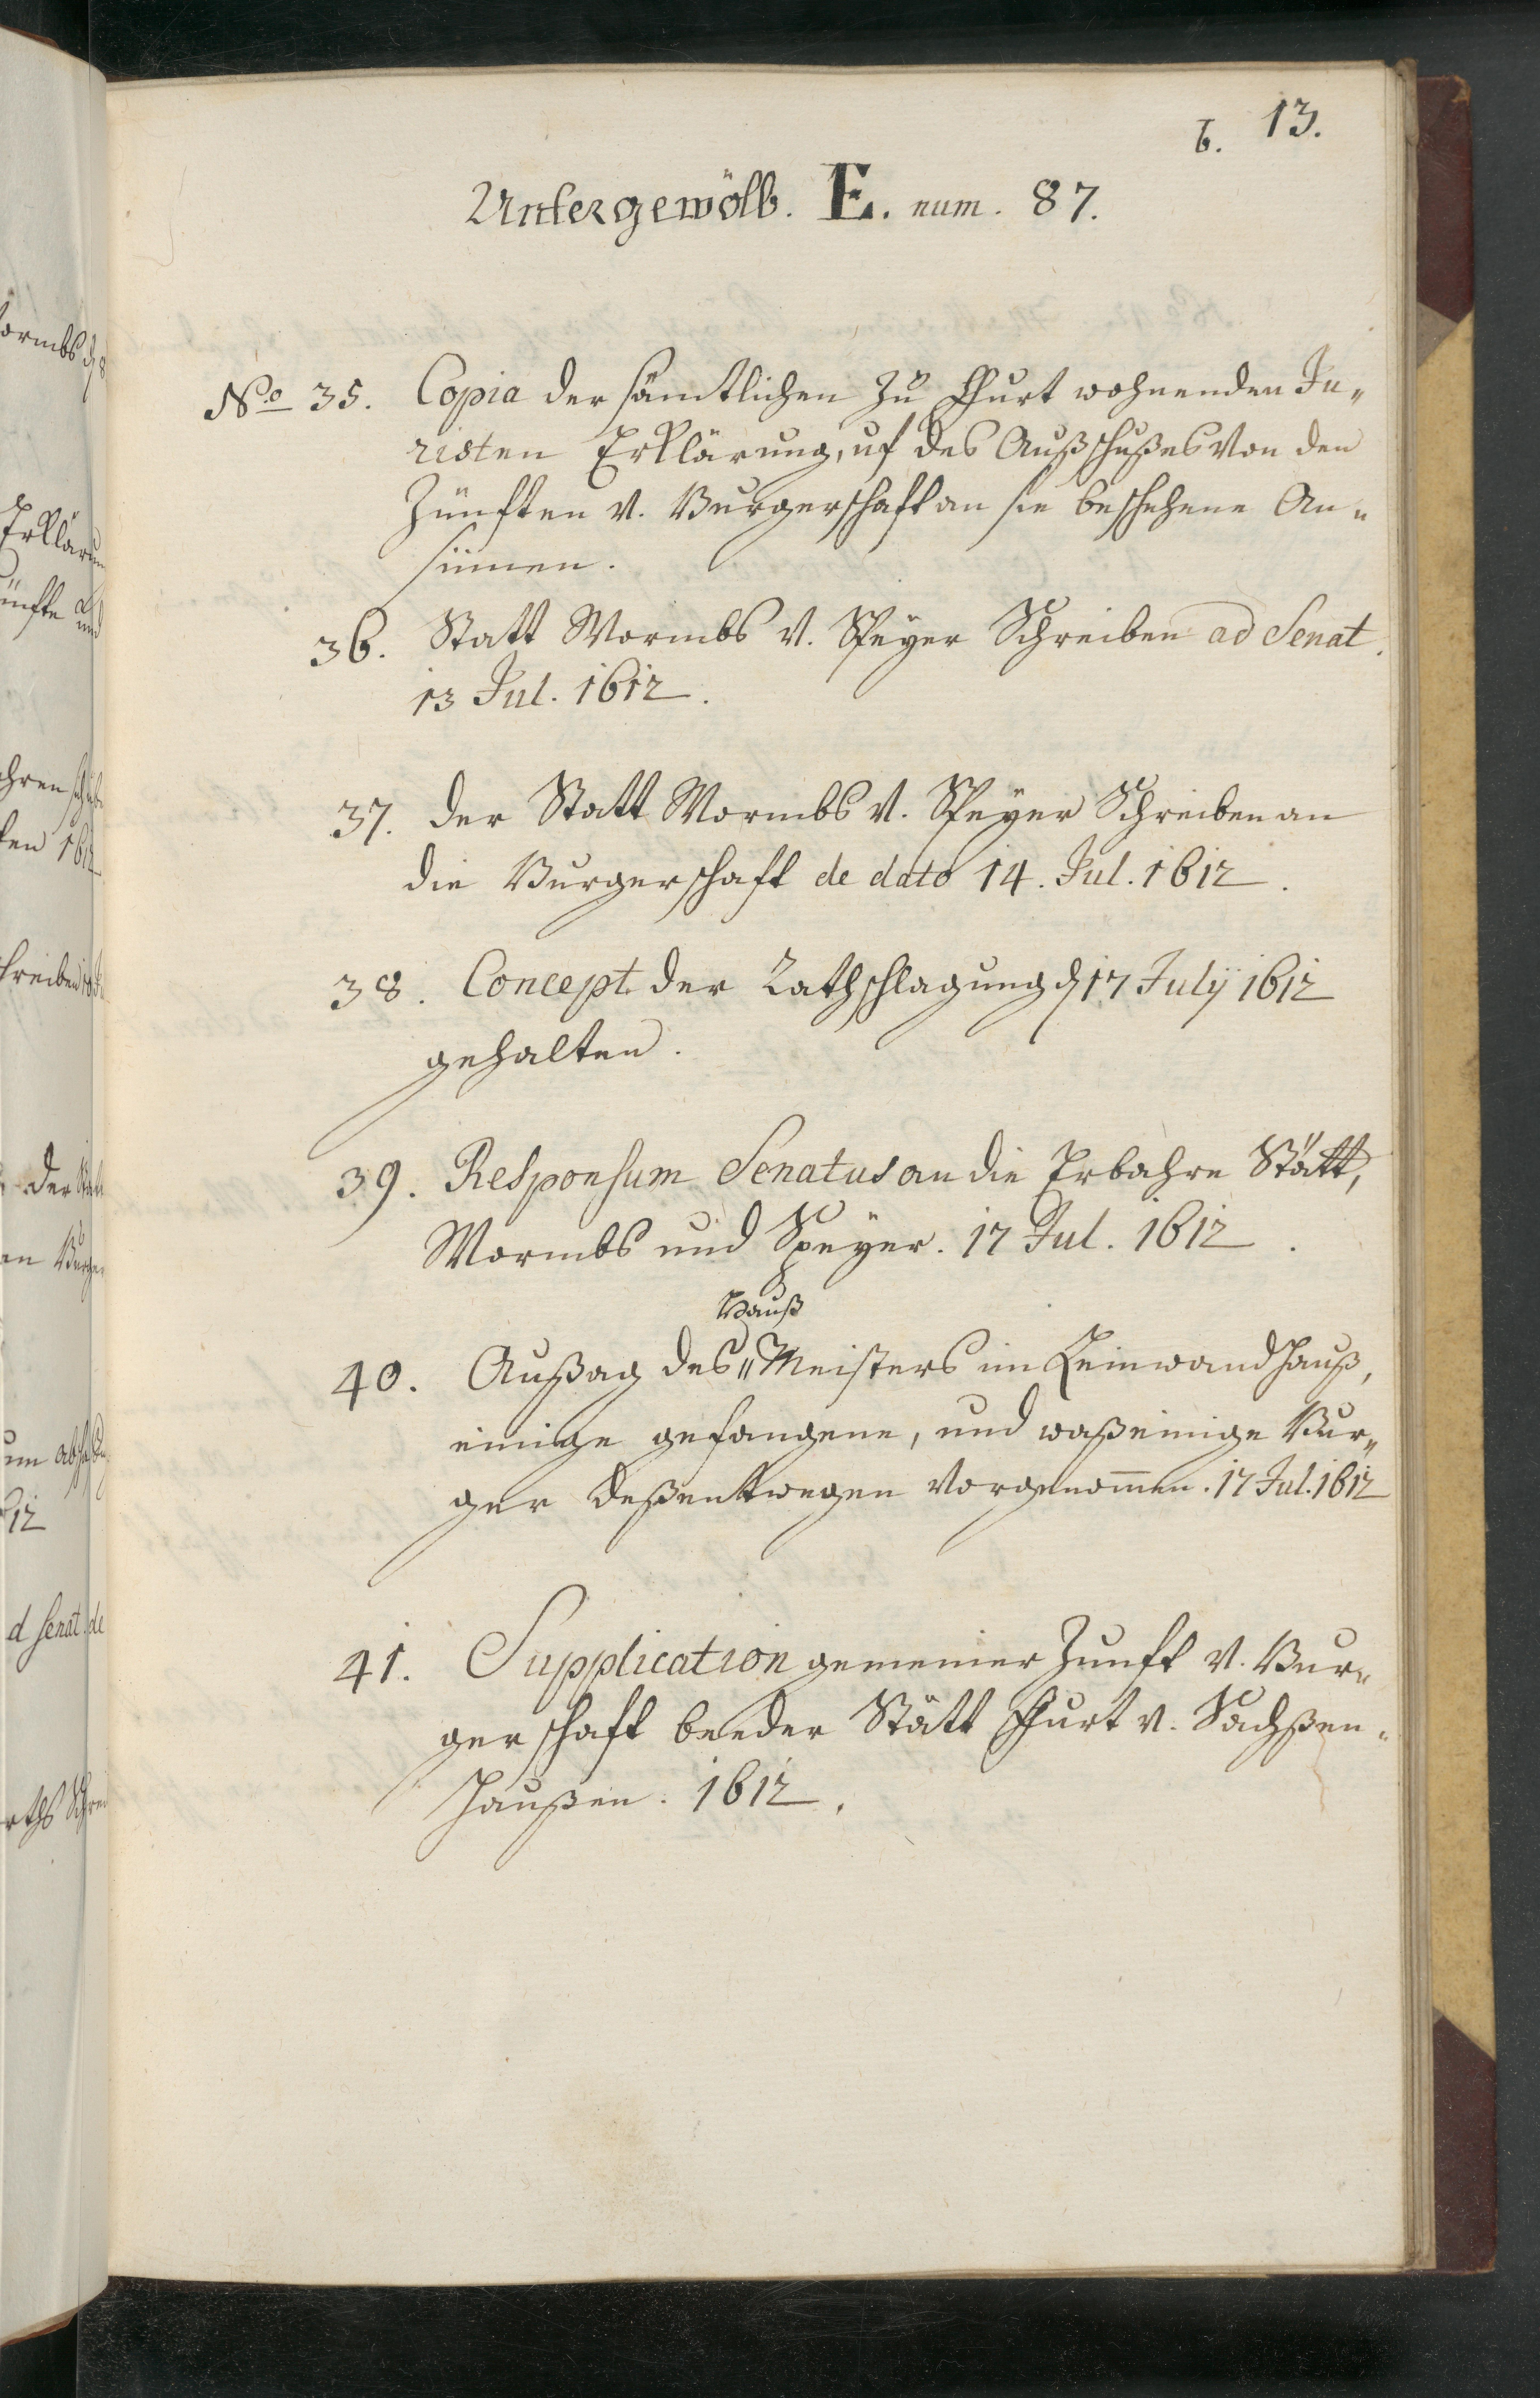 6. 13.
Untergewölb. E. num. 87.
No 35. Copia der sämtlichen zu Ffurt wohnenden Ju„
risten Erklärung, uf des Außschußes von den
Zünfften v. Burgerschafft an sie beschehene An„
sinnen.
36. Statt Wormbs v. Speyer Schreiben ad Senat.
13 Jul. 1612.
37. der Statt Wormbs v. Speyer Schreiben an
die Burgerschafft de dato 14. Jul. 1612.
38. Concept der Rathschlagung d 17 July 1612
gehalten.
39. Responsum Senatus an die Erbahre Stätt,
Wormbs und Speyer. 17 Jul. 1612.
Hauß
40. Außag des„ Meisters im Leinwandhauß,
einige gefangene, und waß einige Bur„
ger deßentwegen vorgenom̄en. 17 Jul. 1612
41. Supplication gemeiner Zunfft v. Bur„
gerschafft beeder Stätt Ffurt v. Sachßen„
haußen. 1612.